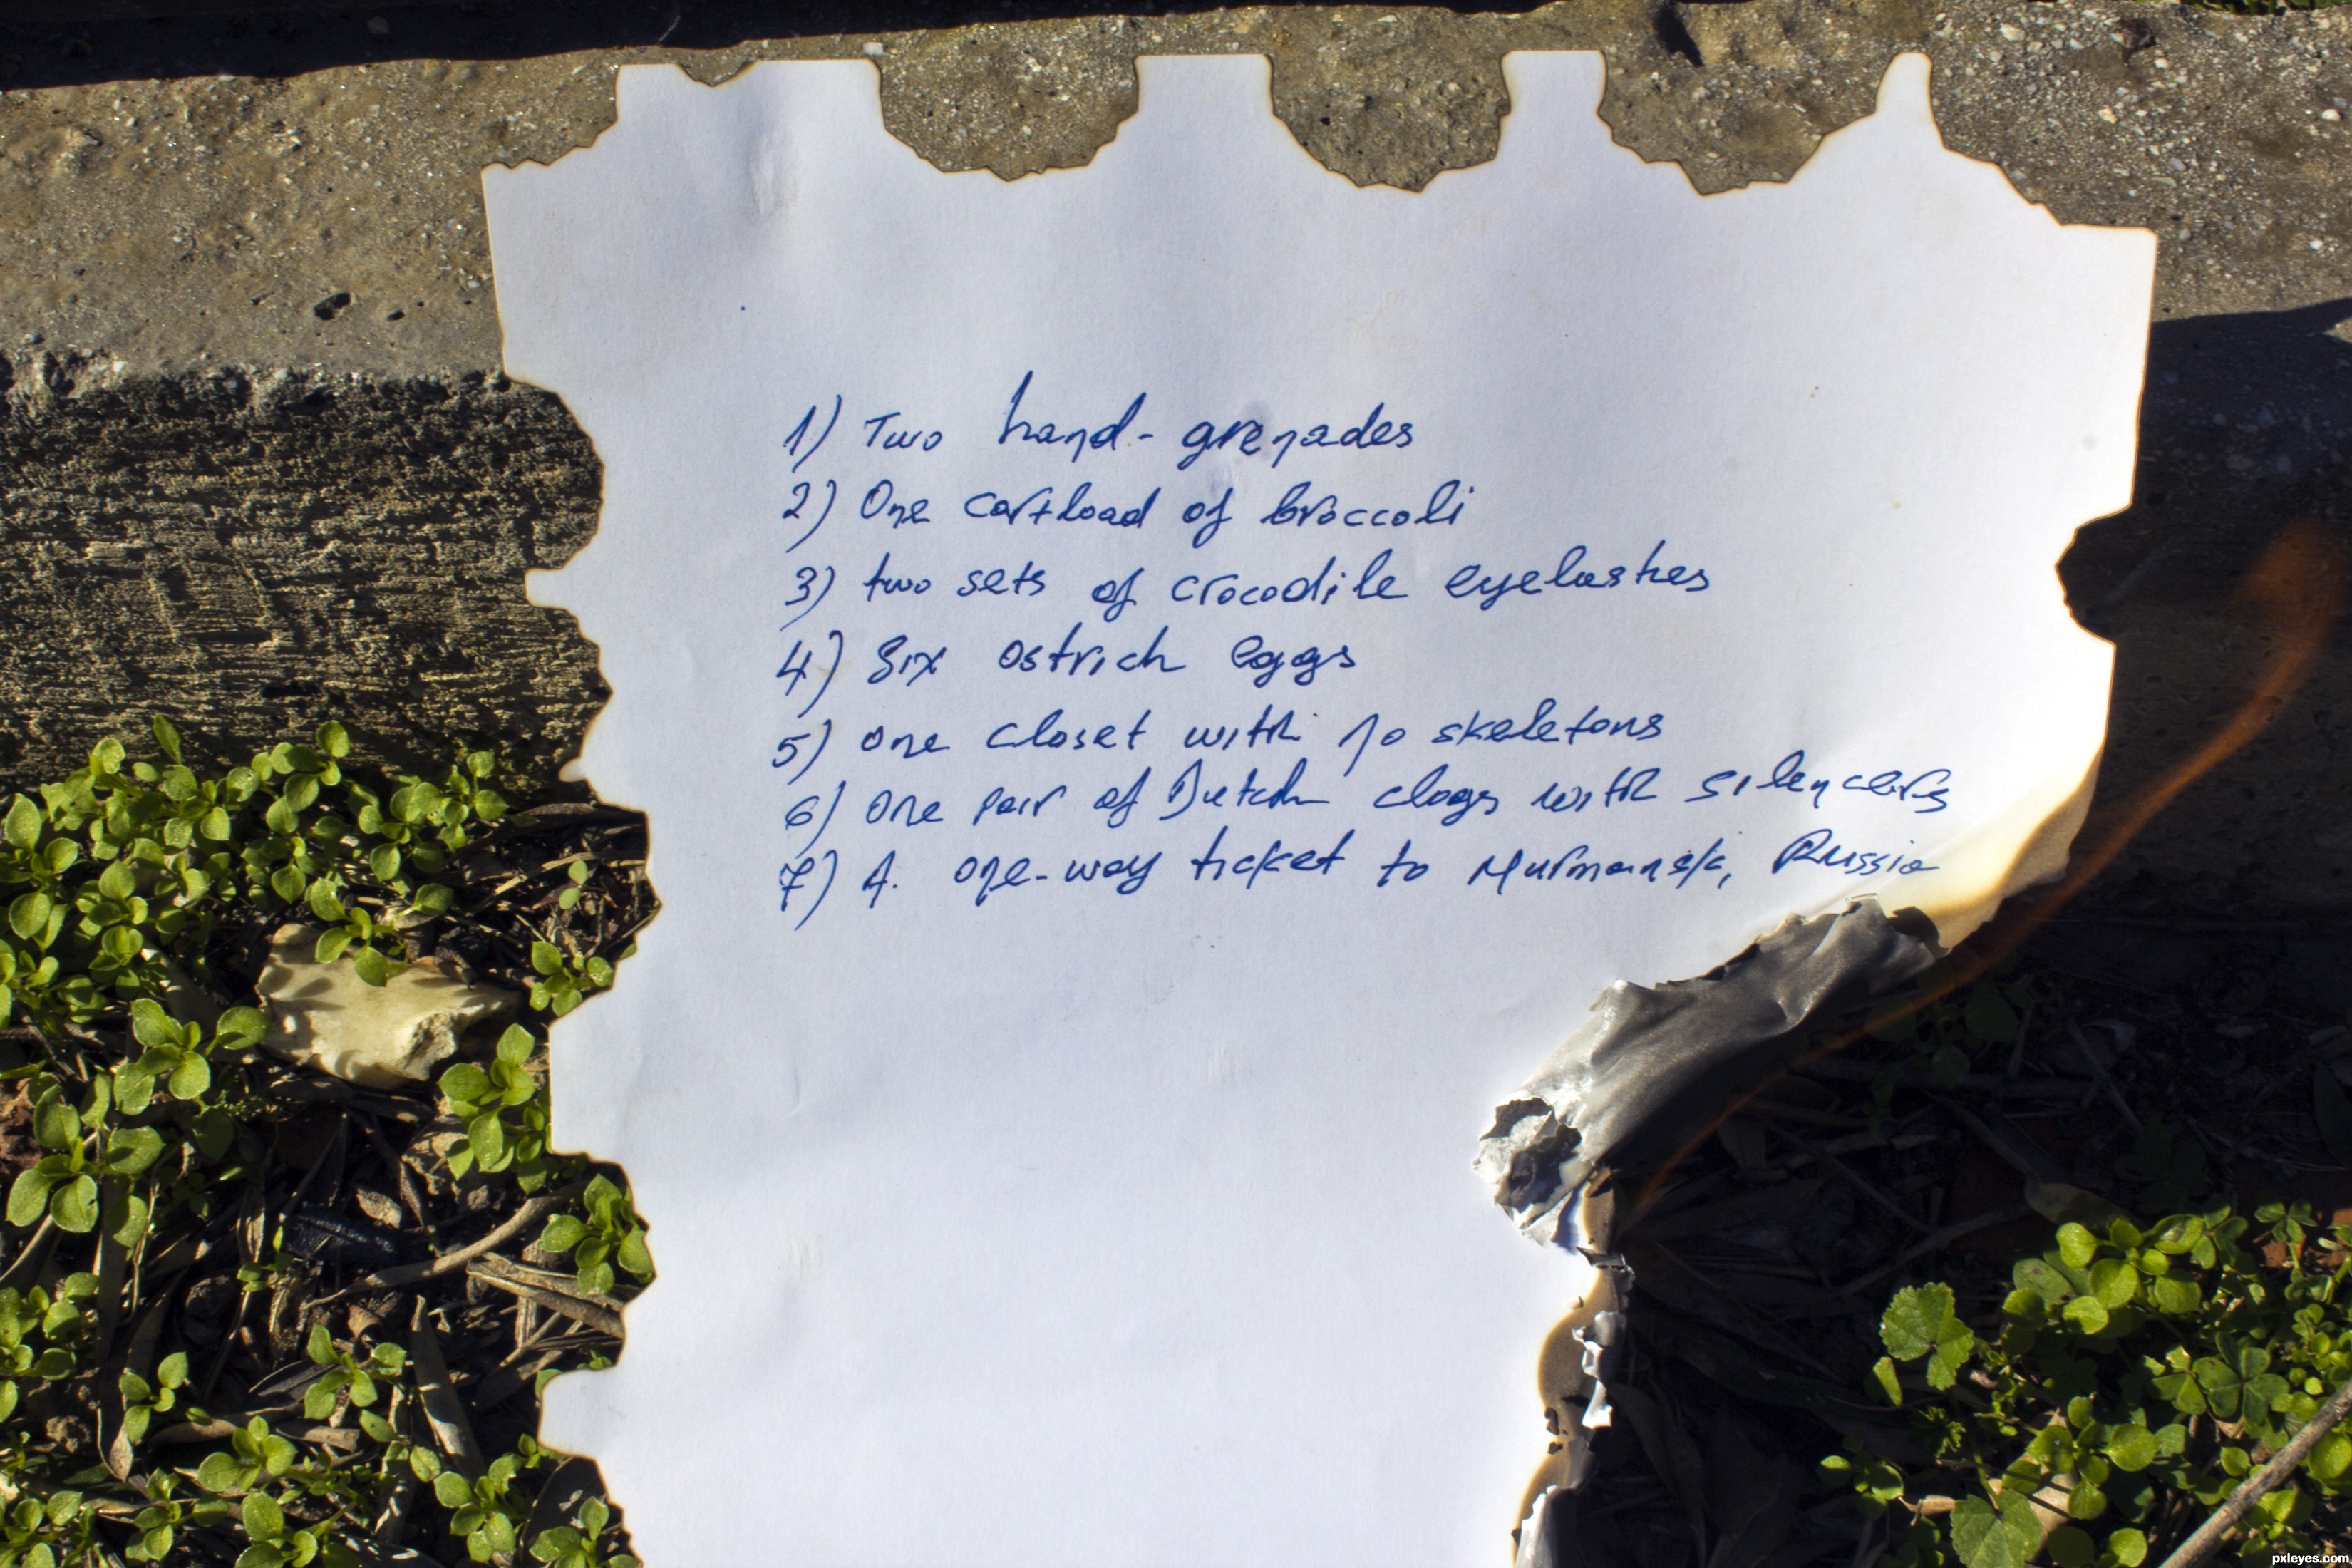 1) Two hand-grenades
2) One cartload of broccoli
3) two sets of crocodile eyelashes
4) Six ostrich eggs
5) one closet with no skeletons
6) One pair of Dutch clogs with silencers
7) A. one-way ticket to Murmansk, Russia
pxleyes.com